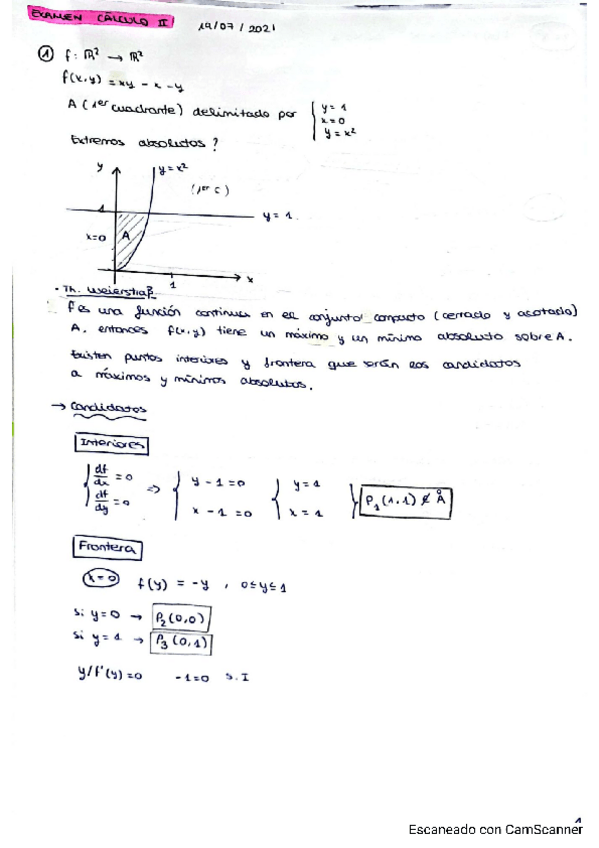 EXAMEN CÁLCULO II 19/07/2021
① f: ℝ² → ℝ²
f(x,y) = xy - x - y
A (1er cuadrante) delimitado por { y = 1
x = 0
y = x²
Extremos absolutos?
y y = x²
(1er C)
1 y = 1
x=0 A
1 x
- Th. Weierstraß
f es una función continua en el conjunto compacto (cerrado y acotado)
A. entonces f(x,y) tiene un máximo y un mínimo absoluto sobre A.
Existen puntos interiores y frontera que serán los candidatos
a máximos y mínimos absolutos.
→ Candidatos
Interiores
df/dx = 0 => y - 1 = 0 y = 1
df/dy = 0 x - 1 = 0 x = 1 P₁(1,1) ∉ Å
Frontera
x=0 f(y) = -y , 0≤y≤1
si y=0 → P₂(0,0)
si y=1 → P₃(0,1)
y/f'(y)=0 -1=0 S.I
1
Escaneado con CamScanner